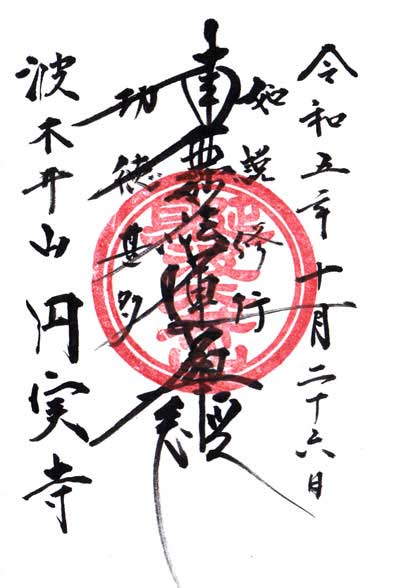 令和五年十一月二十六日
如説修行
南無妙法蓮華経
功徳甚多
波木井山 円実寺